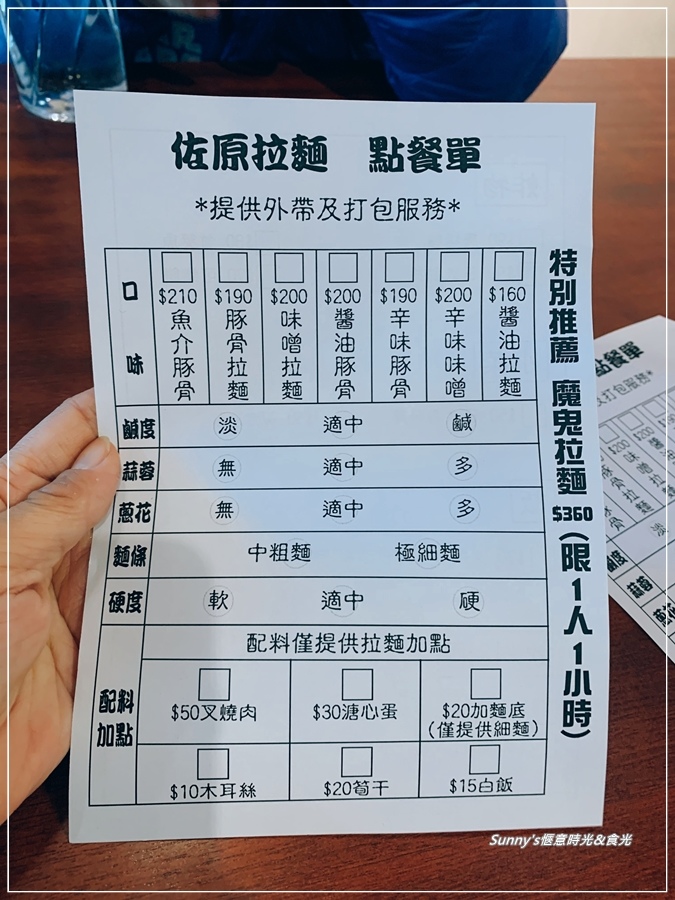 佐原拉麵 點餐單
*提供外帶及打包服務*
口味
$210 魚介豚骨
$190 豚骨拉麵
$200 味噌拉麵
$200 醬油豚骨
$190 辛味豚骨
$200 辛味味噌
$160 醬油拉麵
鹹度 淡 適中 鹹
蒜蓉 無 適中 多
蔥花 無 適中 多
麵條 中粗麵 極細麵
硬度 軟 適中 硬
配料加點
配料僅提供拉麵加點
$50叉燒肉 $30溏心蛋 $20加麵底
(僅提供細麵)
$10木耳絲 $20筍干 $15白飯
特別推薦 魔鬼拉麵 $360(限1人1小時)
點餐單
及打包服務*
$200 $200
味噌拉麵
淡
Sunny's愜意時光&食光